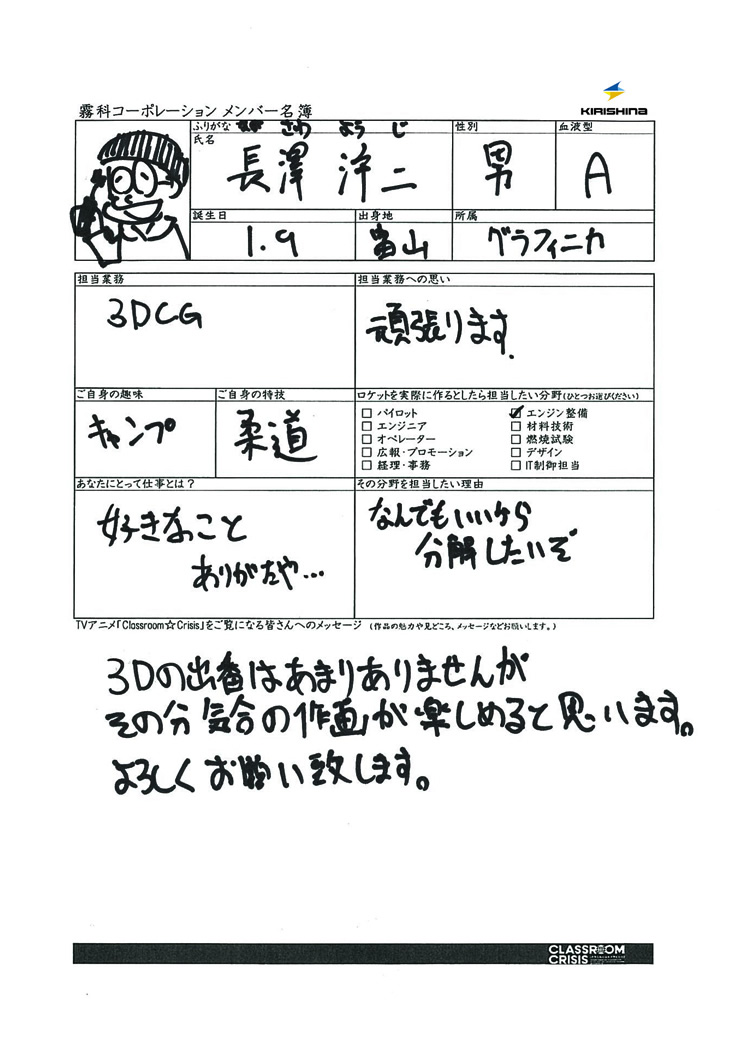 KIRISHINA
霧科コーポレーション メンバー名簿
ふりがな さわ ようじ
氏名
長澤 洋二
性別
男
血液型
A
誕生日
1.9
出身地
富山
所属
グラフィニカ
担当業務
3DCG
担当業務への思い
頑張ります.
ご自身の趣味
キャンプ
ご自身の特技
柔道
ロケットを実際に作るとしたら担当したい分野(ひとつお選びください)
□ パイロット
□ エンジニア
□ オペレーター
□ 広報・プロモーション
□ 経理・事務
☑ エンジン整備
□ 材料技術
□ 燃焼試験
□ デザイン
□ IT制御担当
あなたにとって仕事とは?
好きなこと
ありがたや…
その分野を担当したい理由
なんでもいいから
分解したいぞ
TVアニメ「Classroom☆Crisis」をご覧になる皆さんへのメッセージ (作品の魅力や見どころ、メッセージなどお願いします。)
3Dの出番はあまりありませんが
その分 気合の作画が楽しめると思います。
よろしくお願い致します。
CLASSROOM
CRISIS